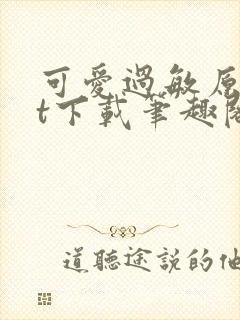 可愛過敏原
t下載筆趣閣
道聽途說的他